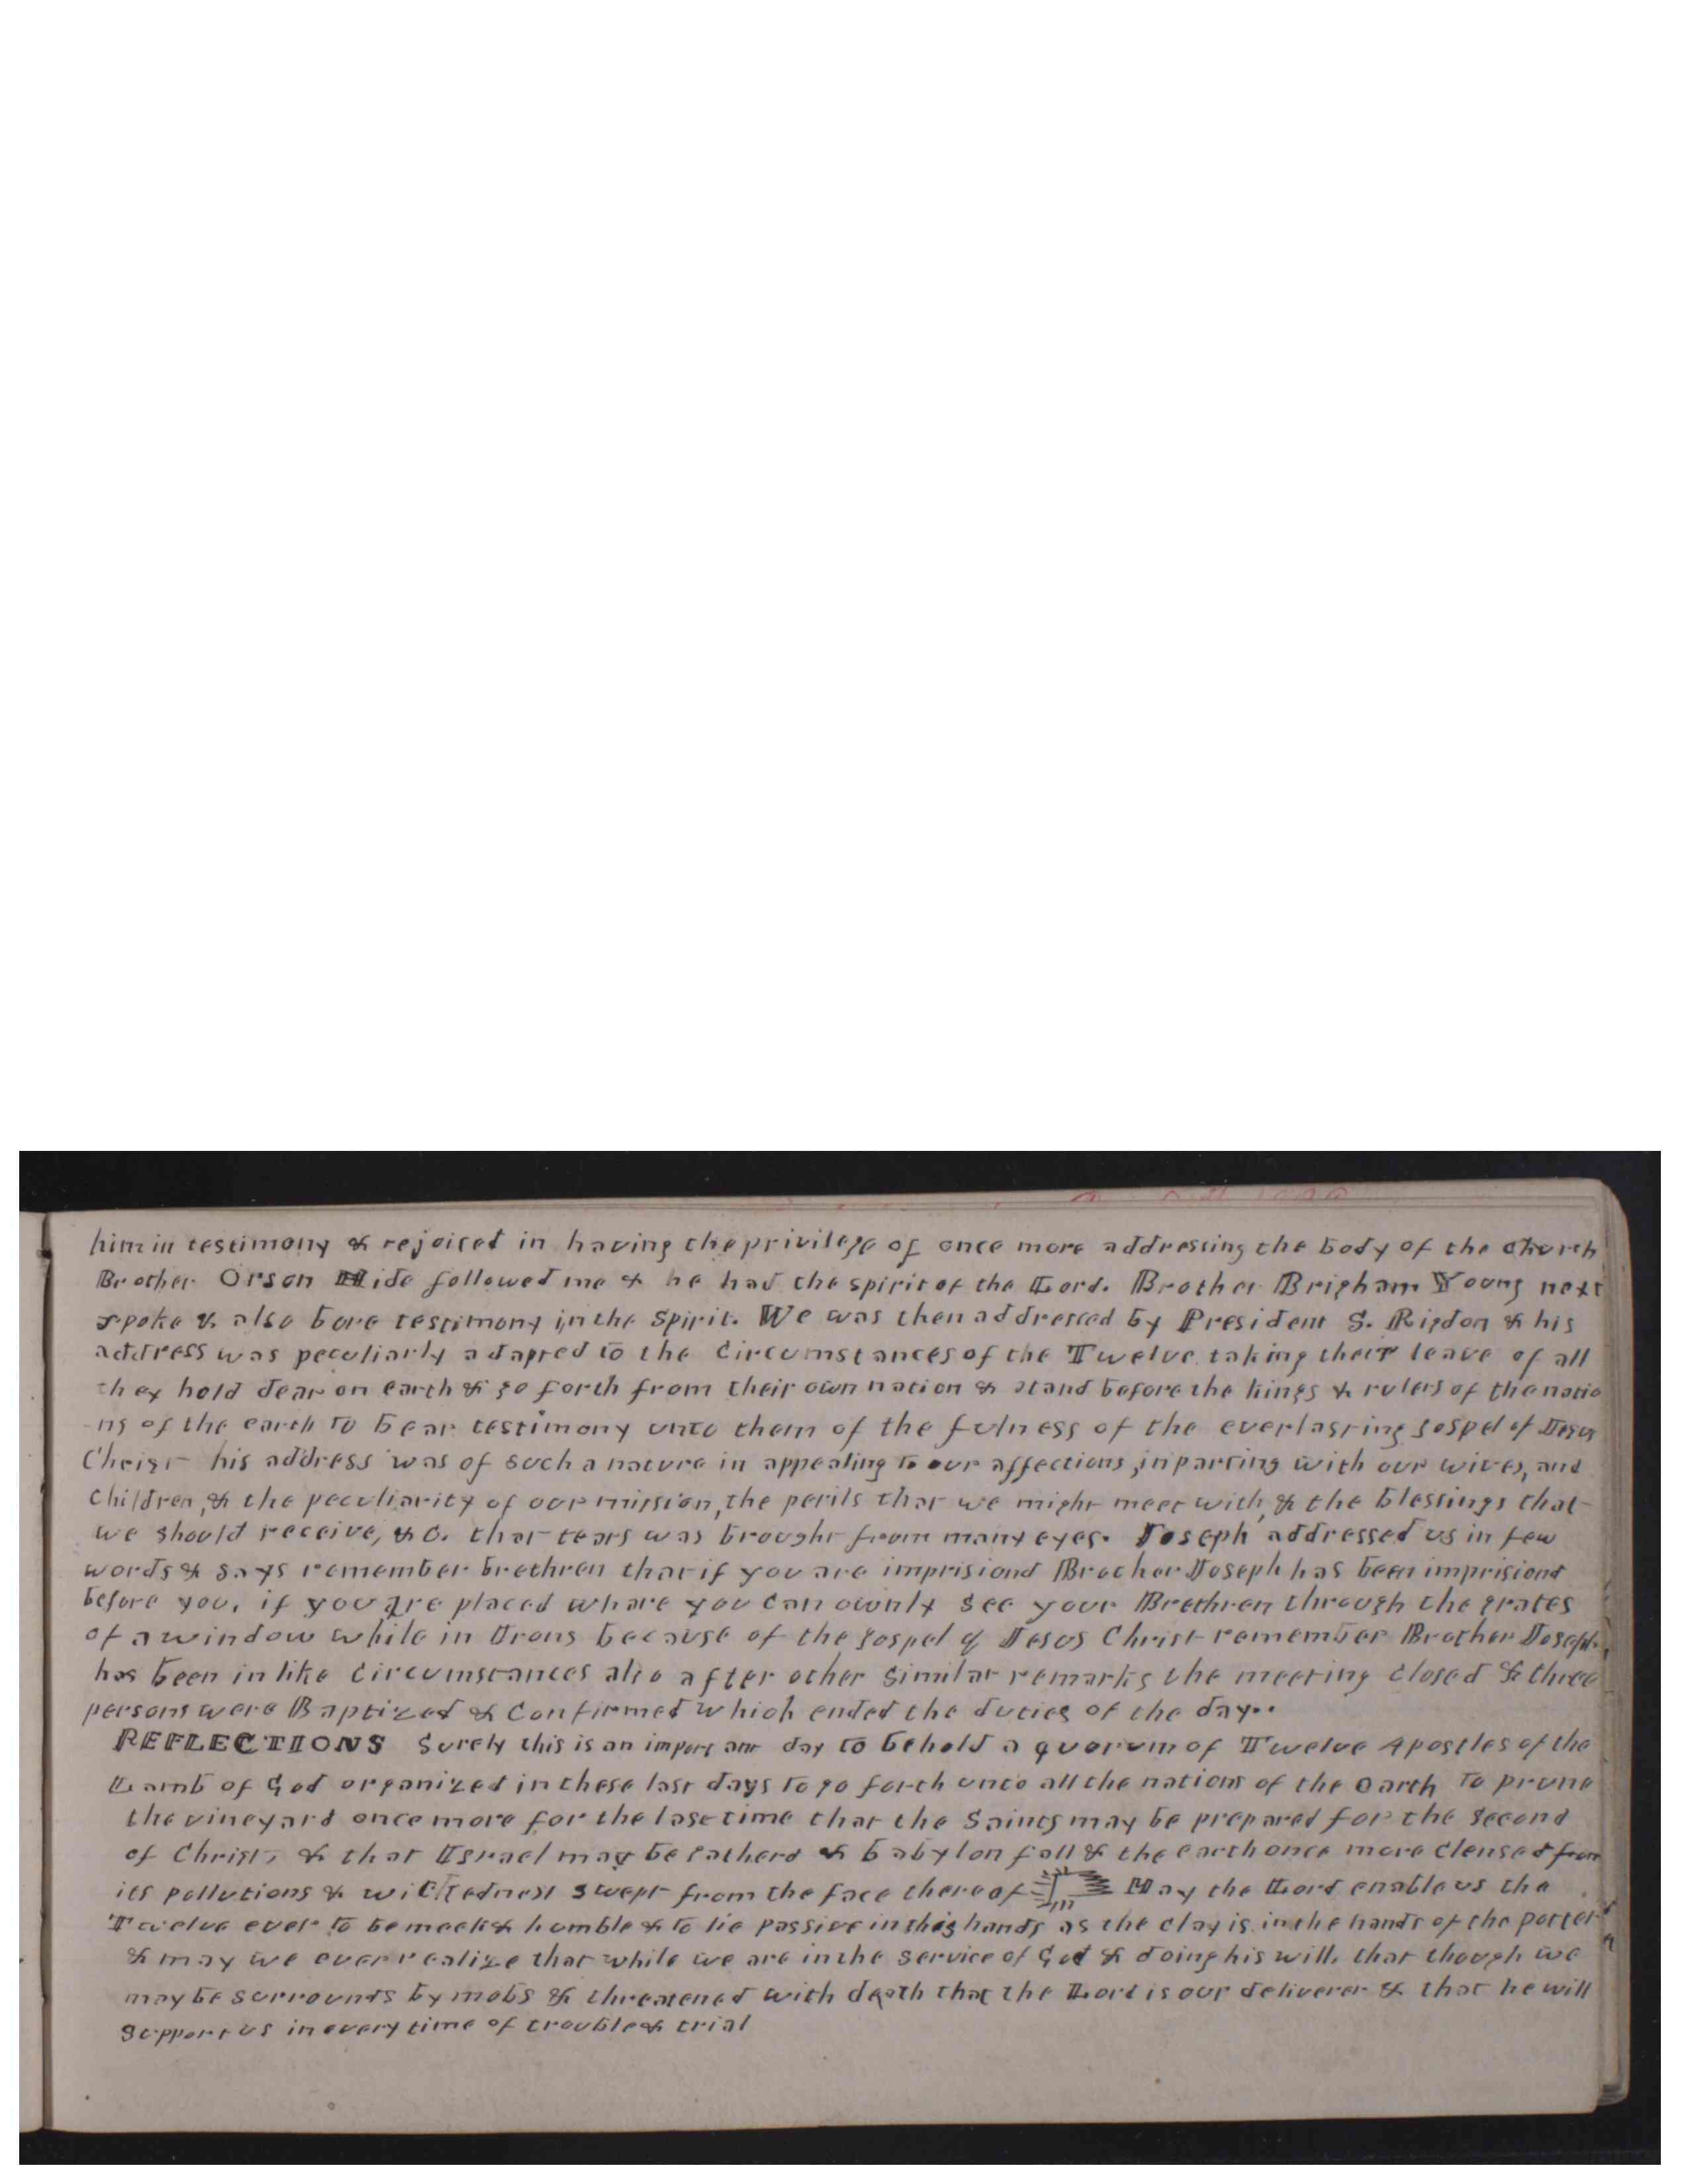 him in testimony & rejoiced in having the privilege of once more addressing the body of the Church
Brother Orson Hide followed me & he had the spirit of the Lord. Brother Brigham Young next
spoke & also bore testimony in the Spirit. We was then addressed by President S. Rigdon & his
address was peculiarly adapted to the Circumstances of the Twelve taking their leave of all
they hold dear on earth & go forth from their own nation & stand before the kings & rulers of the natio
ns of the earth to bear testimony unto them of the fulness of the everlasting gospel of Jesus
Christ his address was of such a nature in appealing to our affections, in parting with our wives, and
Children, & the peculiarity of our mission, the perils that we might meet with, & the blessings that
we should receive, &c. that tears was brought from many eyes. Joseph addressed us in few
words & says remember brethren that if you are imprisiond Brother Joseph has been imprisiond
before you, if you are placed whare you Can ownly see your Brethren through the grates
of a window while in Irons because of the gospel of Jesus Christ remember Brother Joseph
has been in like Circumstances also after other similar remarks the meeting closed & three
persons were Baptized & Confirmed which ended the duties of the day..
REFLECTIONS Surely this is an important day to behold a quorum of Twelve Apostles of the
Lamb of God organized in these last days to go forth unto all the nations of the Earth To prune
the vineyard once more for the last time that the Saints may be prepared for the second
of Christ, & that Israel may be gatherd & babylon fall & the earth once more clensed from
its pollutions & wickedness swept from the face thereof May the Lord enable us the
Twelve ever to be meek & humble & to lie passive in his hands as the clay is in the hands of the potter
& may we ever realize that while we are in the service of God & doing his will, that though we
may be surrounds by mobs & threatened with death that the Lord is our deliverer & that he will
support us in every time of trouble & trial